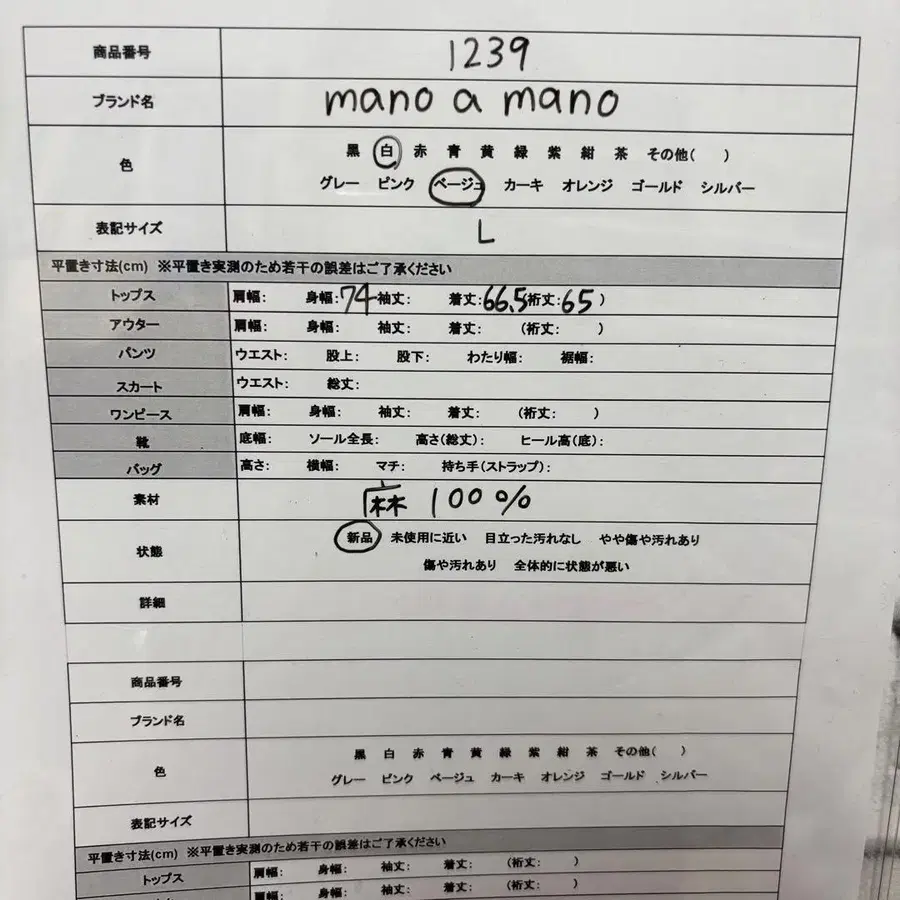 商品番号 1239
ブランド名 mano a mano
色 黒 白 赤 青 黄 緑 紫 紺 茶 その他( )
グレー ピンク ベージュ カーキ オレンジ ゴールド シルバー
表記サイズ L
平置き寸法(cm) ※平置き実測のため若干の誤差はご了承ください
トップス 肩幅: 身幅:74 袖丈: 着丈:66.5 裄丈:65 )
アウター 肩幅: 身幅: 袖丈: 着丈: (裄丈: )
パンツ ウエスト: 股上: 股下: わたり幅: 裾幅:
スカート ウエスト: 総丈:
ワンピース 肩幅: 身幅: 袖丈: 着丈: (裄丈: )
靴 底幅: ソール全長: 高さ(総丈): ヒール高(底):
バッグ 高さ: 横幅: マチ: 持ち手(ストラップ):
素材 麻 100%
状態 新品 未使用に近い 目立った汚れなし やや傷や汚れあり
傷や汚れあり 全体的に状態が悪い
詳細
商品番号
ブランド名
色 黒 白 赤 青 黄 緑 紫 紺 茶 その他( )
グレー ピンク ベージュ カーキ オレンジ ゴールド シルバー
表記サイズ
平置き寸法(cm) ※平置き実測のため若干の誤差はご了承ください
トップス 肩幅: 身幅: 袖丈: 着丈: (裄丈: )
肩幅: 身幅: 袖丈: 着丈: (裄丈: )